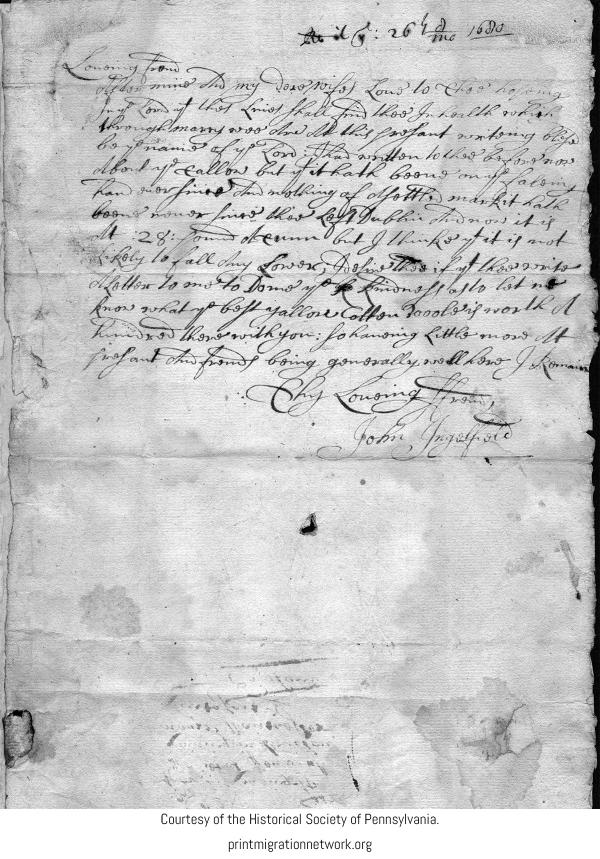 ye: 26th 8/mo 1680
Loveing frend
After mine And my dere wifes Love to thee hopeing
in ye Lord yt thes Lines shall find thee In health which
through marcy wee Are At this presant writeing blesed
be ye name of ye Lord: I had written to thee before now
About ye tallow but it hath beene on ye faleing
hand ever since And nothing of A settled markit hath
beene never since thee Left Dublin And now it is
At :28: but I thinke yt it is not
Likely to fall Any Lower, I desire thee if yt thee write
A Letter to me to dome ye kindness As to let me
know what ye best yallow Cotten woole is worth A
hundred there with you: so haveing Little more At
presant And frends being generally well here I Remain
Thy Loveing ffrend,
John Ingelfield
Courtesy of the Historical Society of Pennsylvania.
printmigrationnetwork.org